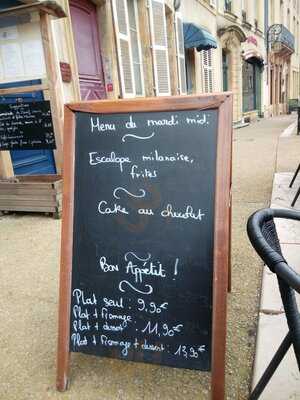 Menu du mardi midi.
Escalope milanaise,
frites
Cake au chocolat
Bon Appétit !
Plat seul : 9,90€
Plat + fromage
Plat + dessert : 11,90€
Plat + fromage + dessert : 13,90€